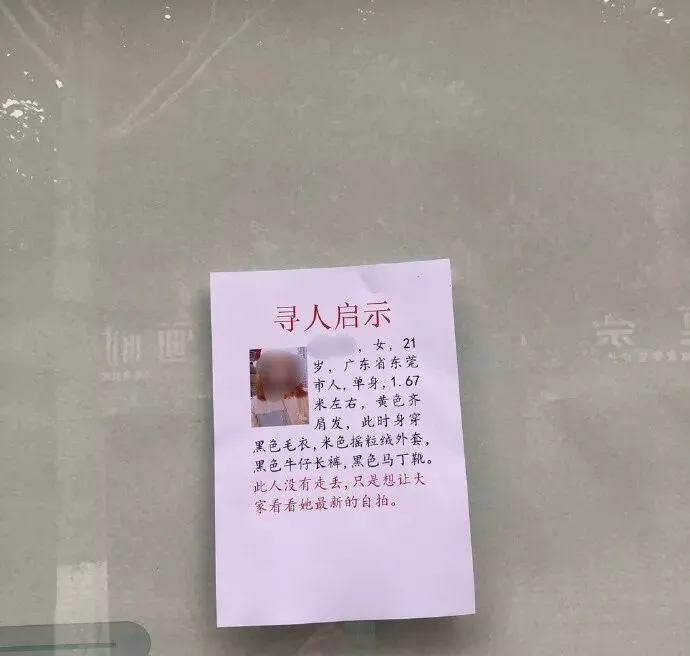 寻人启示
，女，21
岁，广东省东莞
市人，单身，1.67
米左右，黄色齐
肩发，此时身穿
黑色毛衣，米色摇粒绒外套，
黑色牛仔长裤，黑色马丁靴。
此人没有走丢，只是想让大
家看看她最新的自拍。